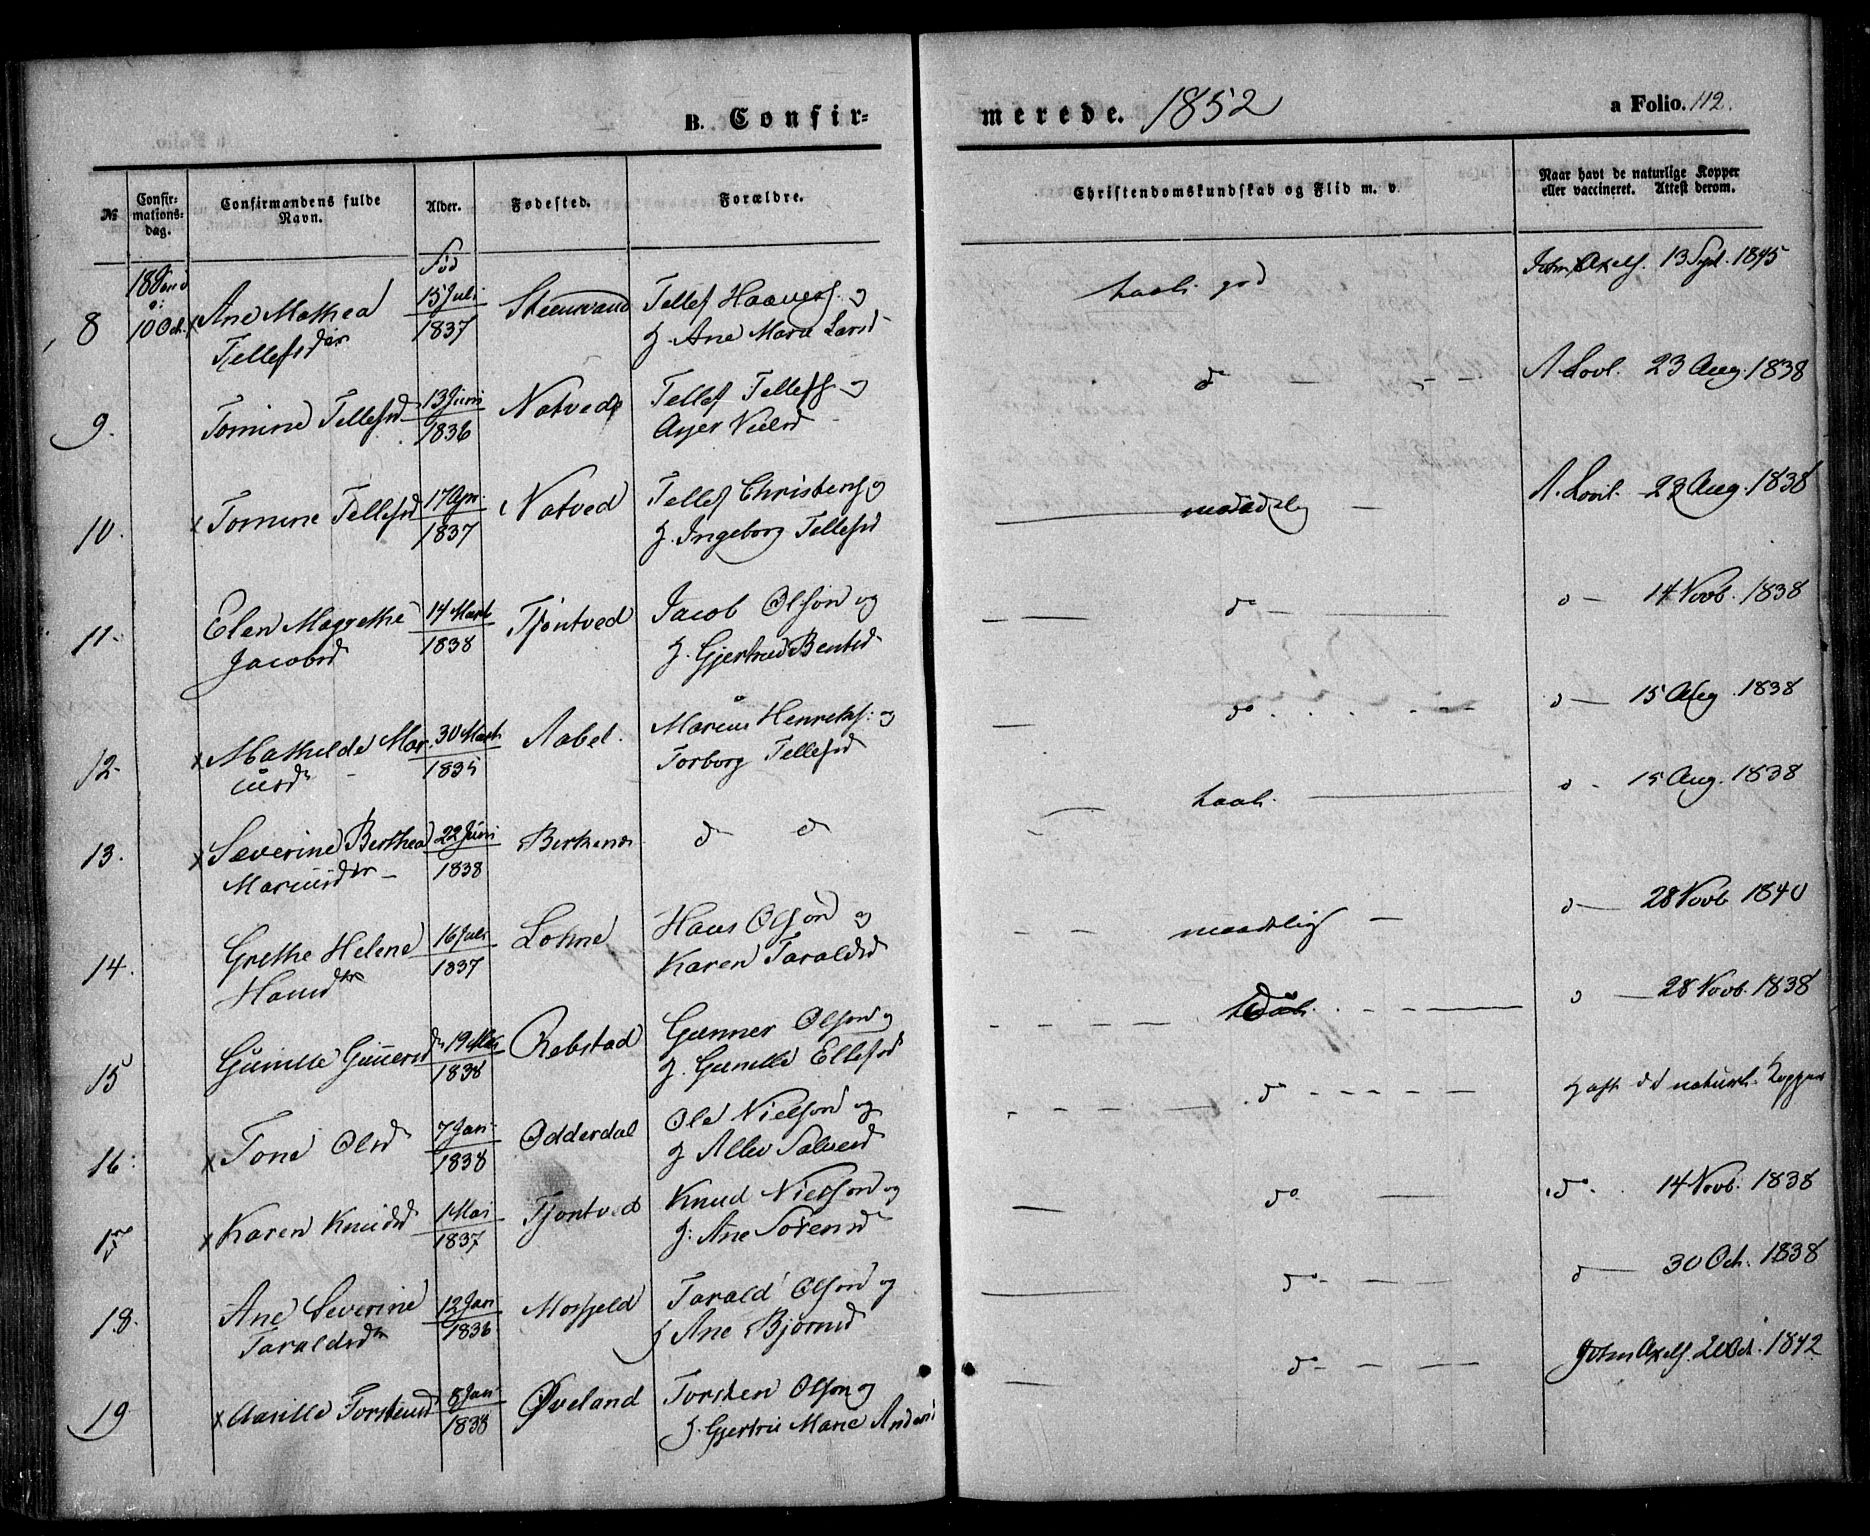 B. Confir=
merede. 1852
a Folio. 112.
№
Confir-
mations-
dag.
Confirmandens fulde
Navn.
Alder.
Fødested.
Forældre.
Christendomskundskab og Flid m. v.
Naar havt de naturlige Kopper
eller vaccineret. Attest derom.
Fød
8
10 Oct.
x Ane Mathea
Tellefsdr
15 Juli
1837
Steensvand
Tellef Haavers. og
H. Ane Marie Larsd
taal. god
John Axels. 13 Sept. 1845
9.
Tomine Tellefsd
13 Juni
1836
Natved
Tellef Tellefs. og
Asjer Nielsd
do — - -
A. Lovl. 23 Aug. 1838
10.
x Tomine Tellefsd
17 Apr.
1837
Natved
Tellef Christens. og
H. Ingeborg Tellefsd
maadelig —
A. Lovl. 23 Aug. 1838
11.
Elen Magrethe
Jacobsd
14 Marts
1838
Tjøntved
Jacob Olsøn og
H. Gjertrud Bentsd
do —
do — 14 Novb. 1838
12.
x Mathilde Mar-
iusd
30 Marts
1835
Aabel.
Marius Henriks. og
Torborg Tellefsd
do
do — 15 Aug. 1838
13.
x Severine Berthea
Mariusdr
22 Juni
1838
Birkenes
do do
taal.
do - 15 Aug. 1838
14.
Grethe Helene
Hansdtr
16 Juli
1837
Lohne
Hans Olsøn og
Karen Taraldsd
maadelig —
do — 28 Novb. 1840
15
Gunille Gunnersd
19 Mai
1838
Rebstad
Gunner Olsøn og
H. Gunille Ellefsd
taal.
do — 28 Novb. 1838
16.
x Tone Olsd
7 Jan.
1838
Odderdal
Ole Nielsøn og
H. Allev Salvesd
do
haft de naturl. Kopper
17
x Karen Knudsd
1 Mai
1837
Tjøntved
Knud Nielsøn og
H. Ane Sørensd
do. —
do. 14 Novb. 1838
18.
Ane Severine
Taraldsd
12 Jan
1836
Mosfjeld
Tarald Olsøn og
H Ane Bjørnsd
do -
do — 30 Oct. 1838
19
x Aasille Torstensd
8 Jan
1838
Øveland
Torsten Olsøn og
H. Gjertru Marie Andersd
do -
John Axels. 20 Oct. 1842